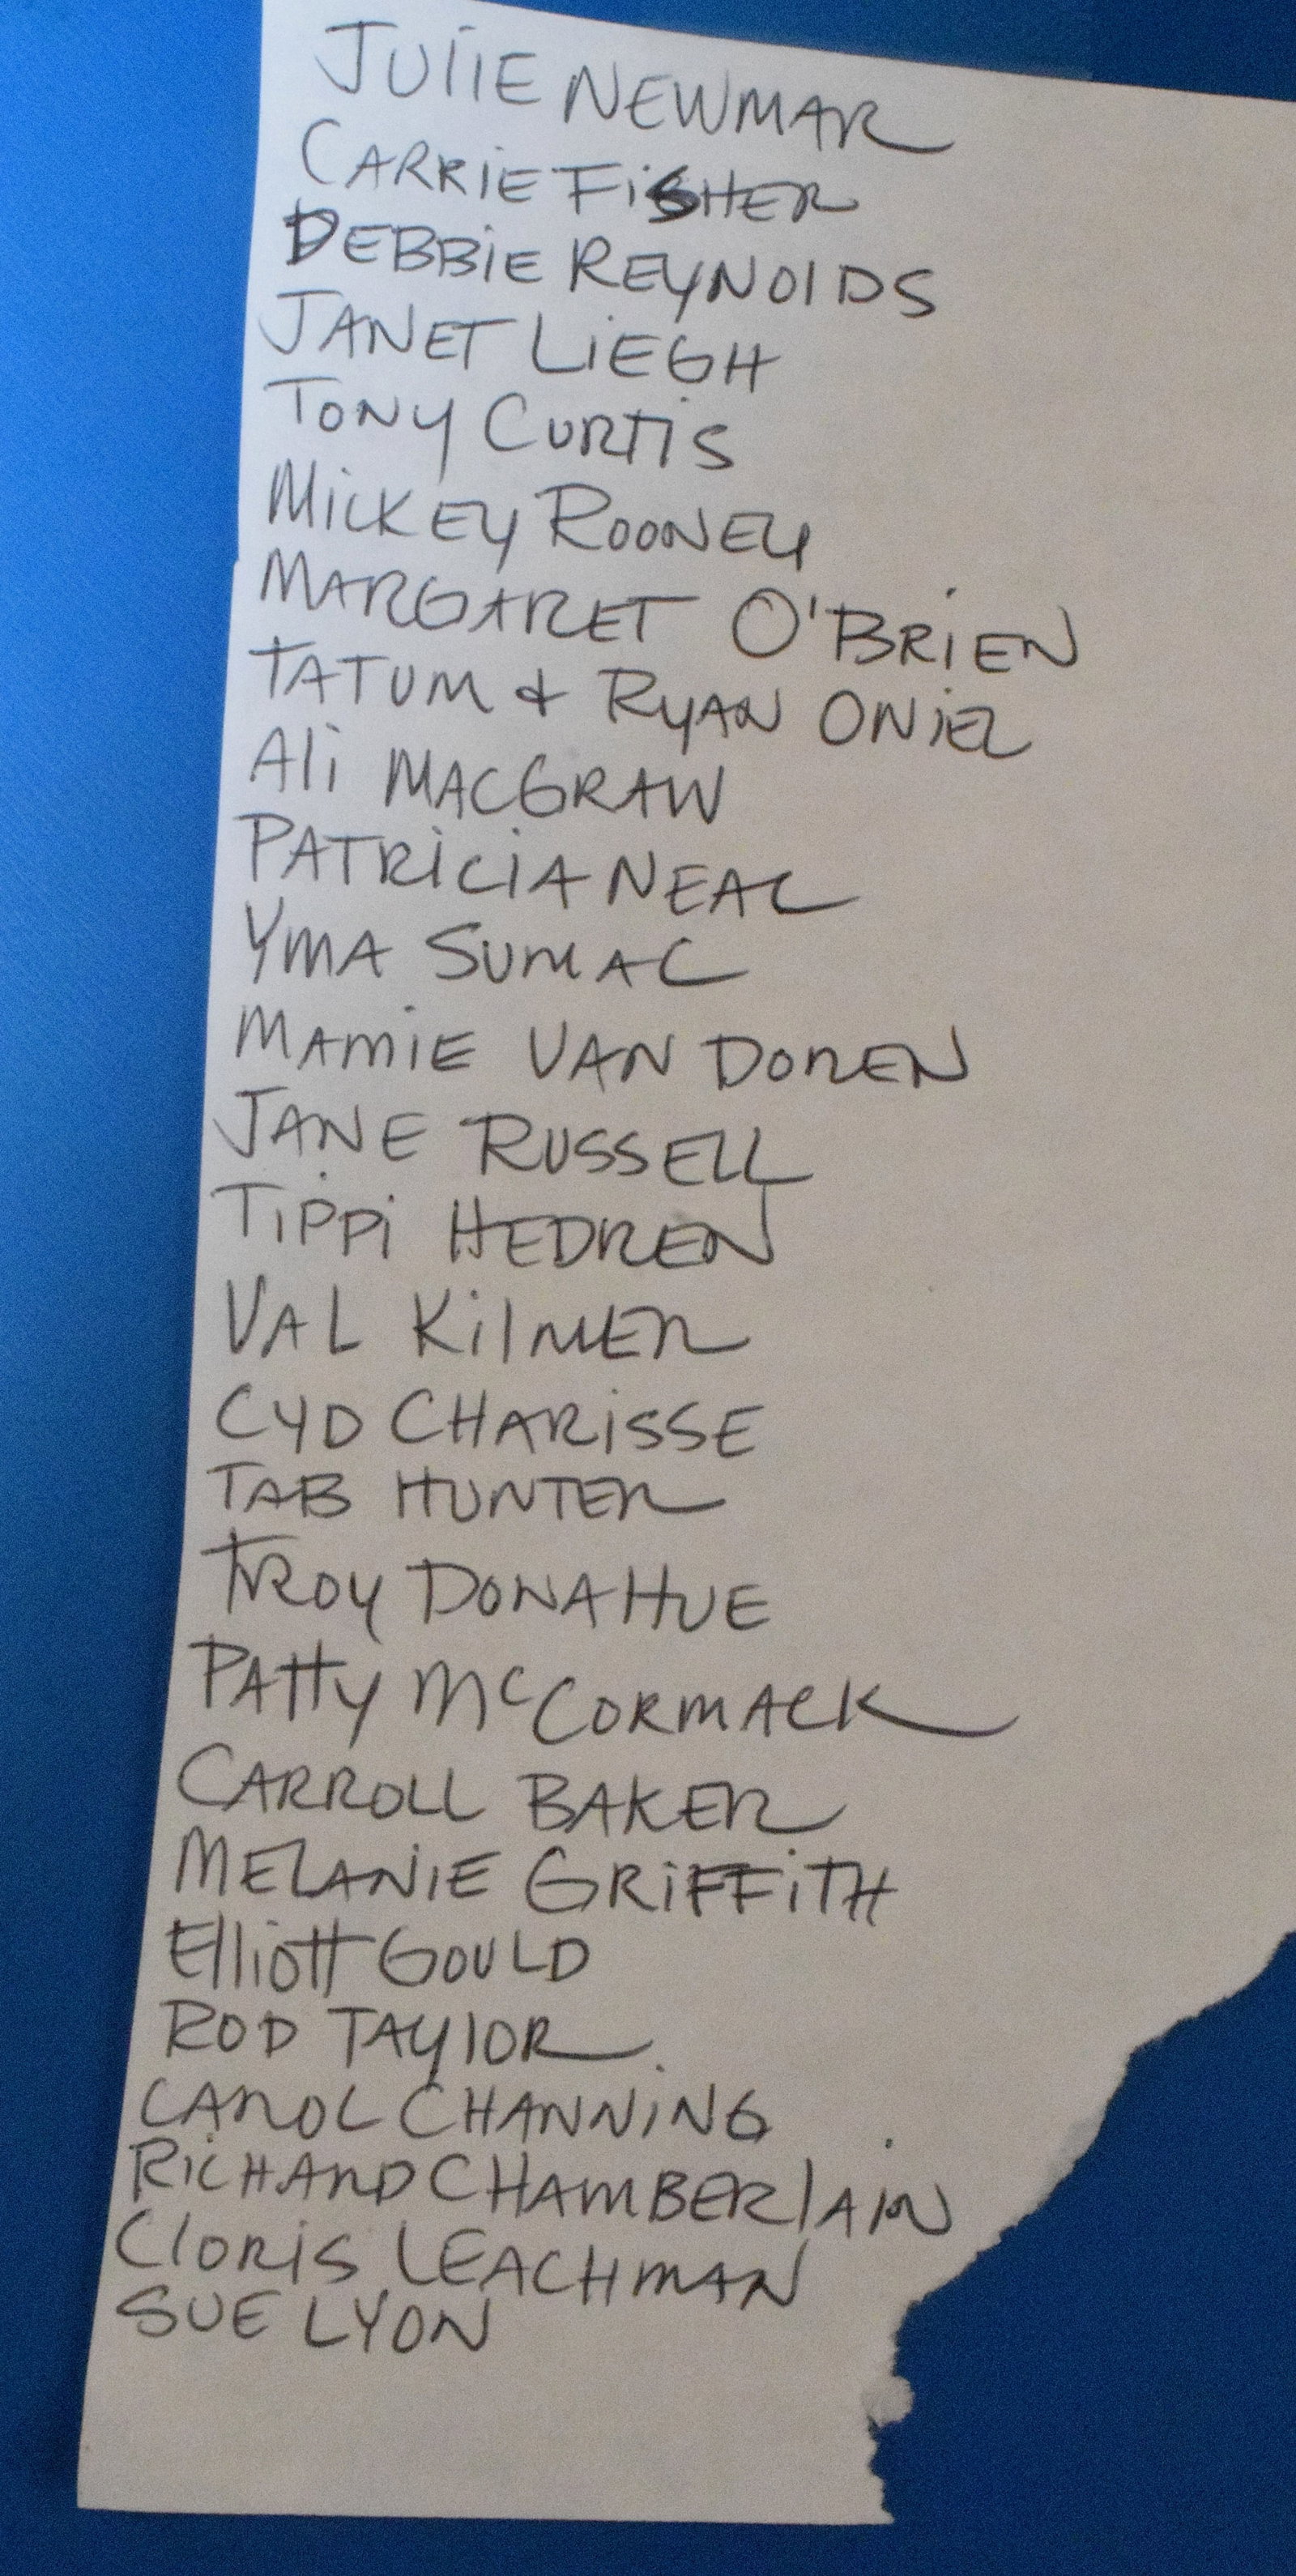 JUlIE NEWMAR
CARRIE FiSHER
DEBBiE REYNOlDS
JANET LiEGH
TONY CURTiS
MiCKEY ROONEY
MARGARET O'BRiEN
TATUM & RYAN ONiEL
Ali MACGRAW
PATRiCiA NEAL
YMA SUMAC
MAMiE VAN DOREN
JANE RUSSELL
TiPPi HEDREN
VAL KilMER
CYD CHARiSSE
TAB HUNTER
TROY DONAHUE
PATTY McCORMACK
CARROLL BAKER
MELANiE GRiFFiTH
ElliOTT GOULD
ROD TAYlOR
CAROL CHANNiNG
RiCHARD CHAMBERlAiN
ClORiS LEACHMAN
SUE LYON